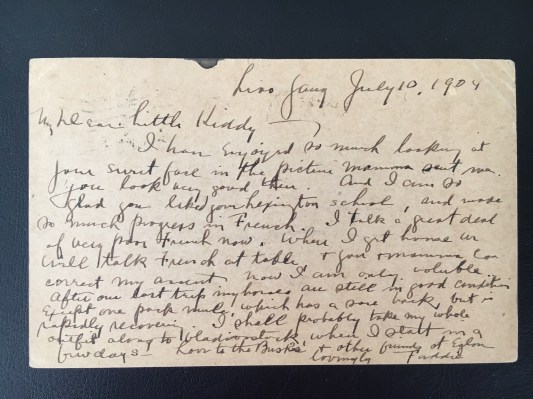 Liao Yang July 10, 1904
My Dear Little Kiddy
I have enjoyed so much looking at
your sweet face in the picture mamma sent me.
you look very good there. And I am so
glad you like your Lexington school, and made
so much progress in French. I talk a great deal
of very poor French now. When I get home we
will talk French at table & you & mamma can
correct my accent. now I am only voluble.
After our last trip my horses are still in good condition
Except one pack mule, which has a sore back but is
rapidly recovering. I shall probably take my whole
outfit along to Vladivostock, when I start in a
few days — Love to the Busks & other friends at Eglon
Lovingly Faddie